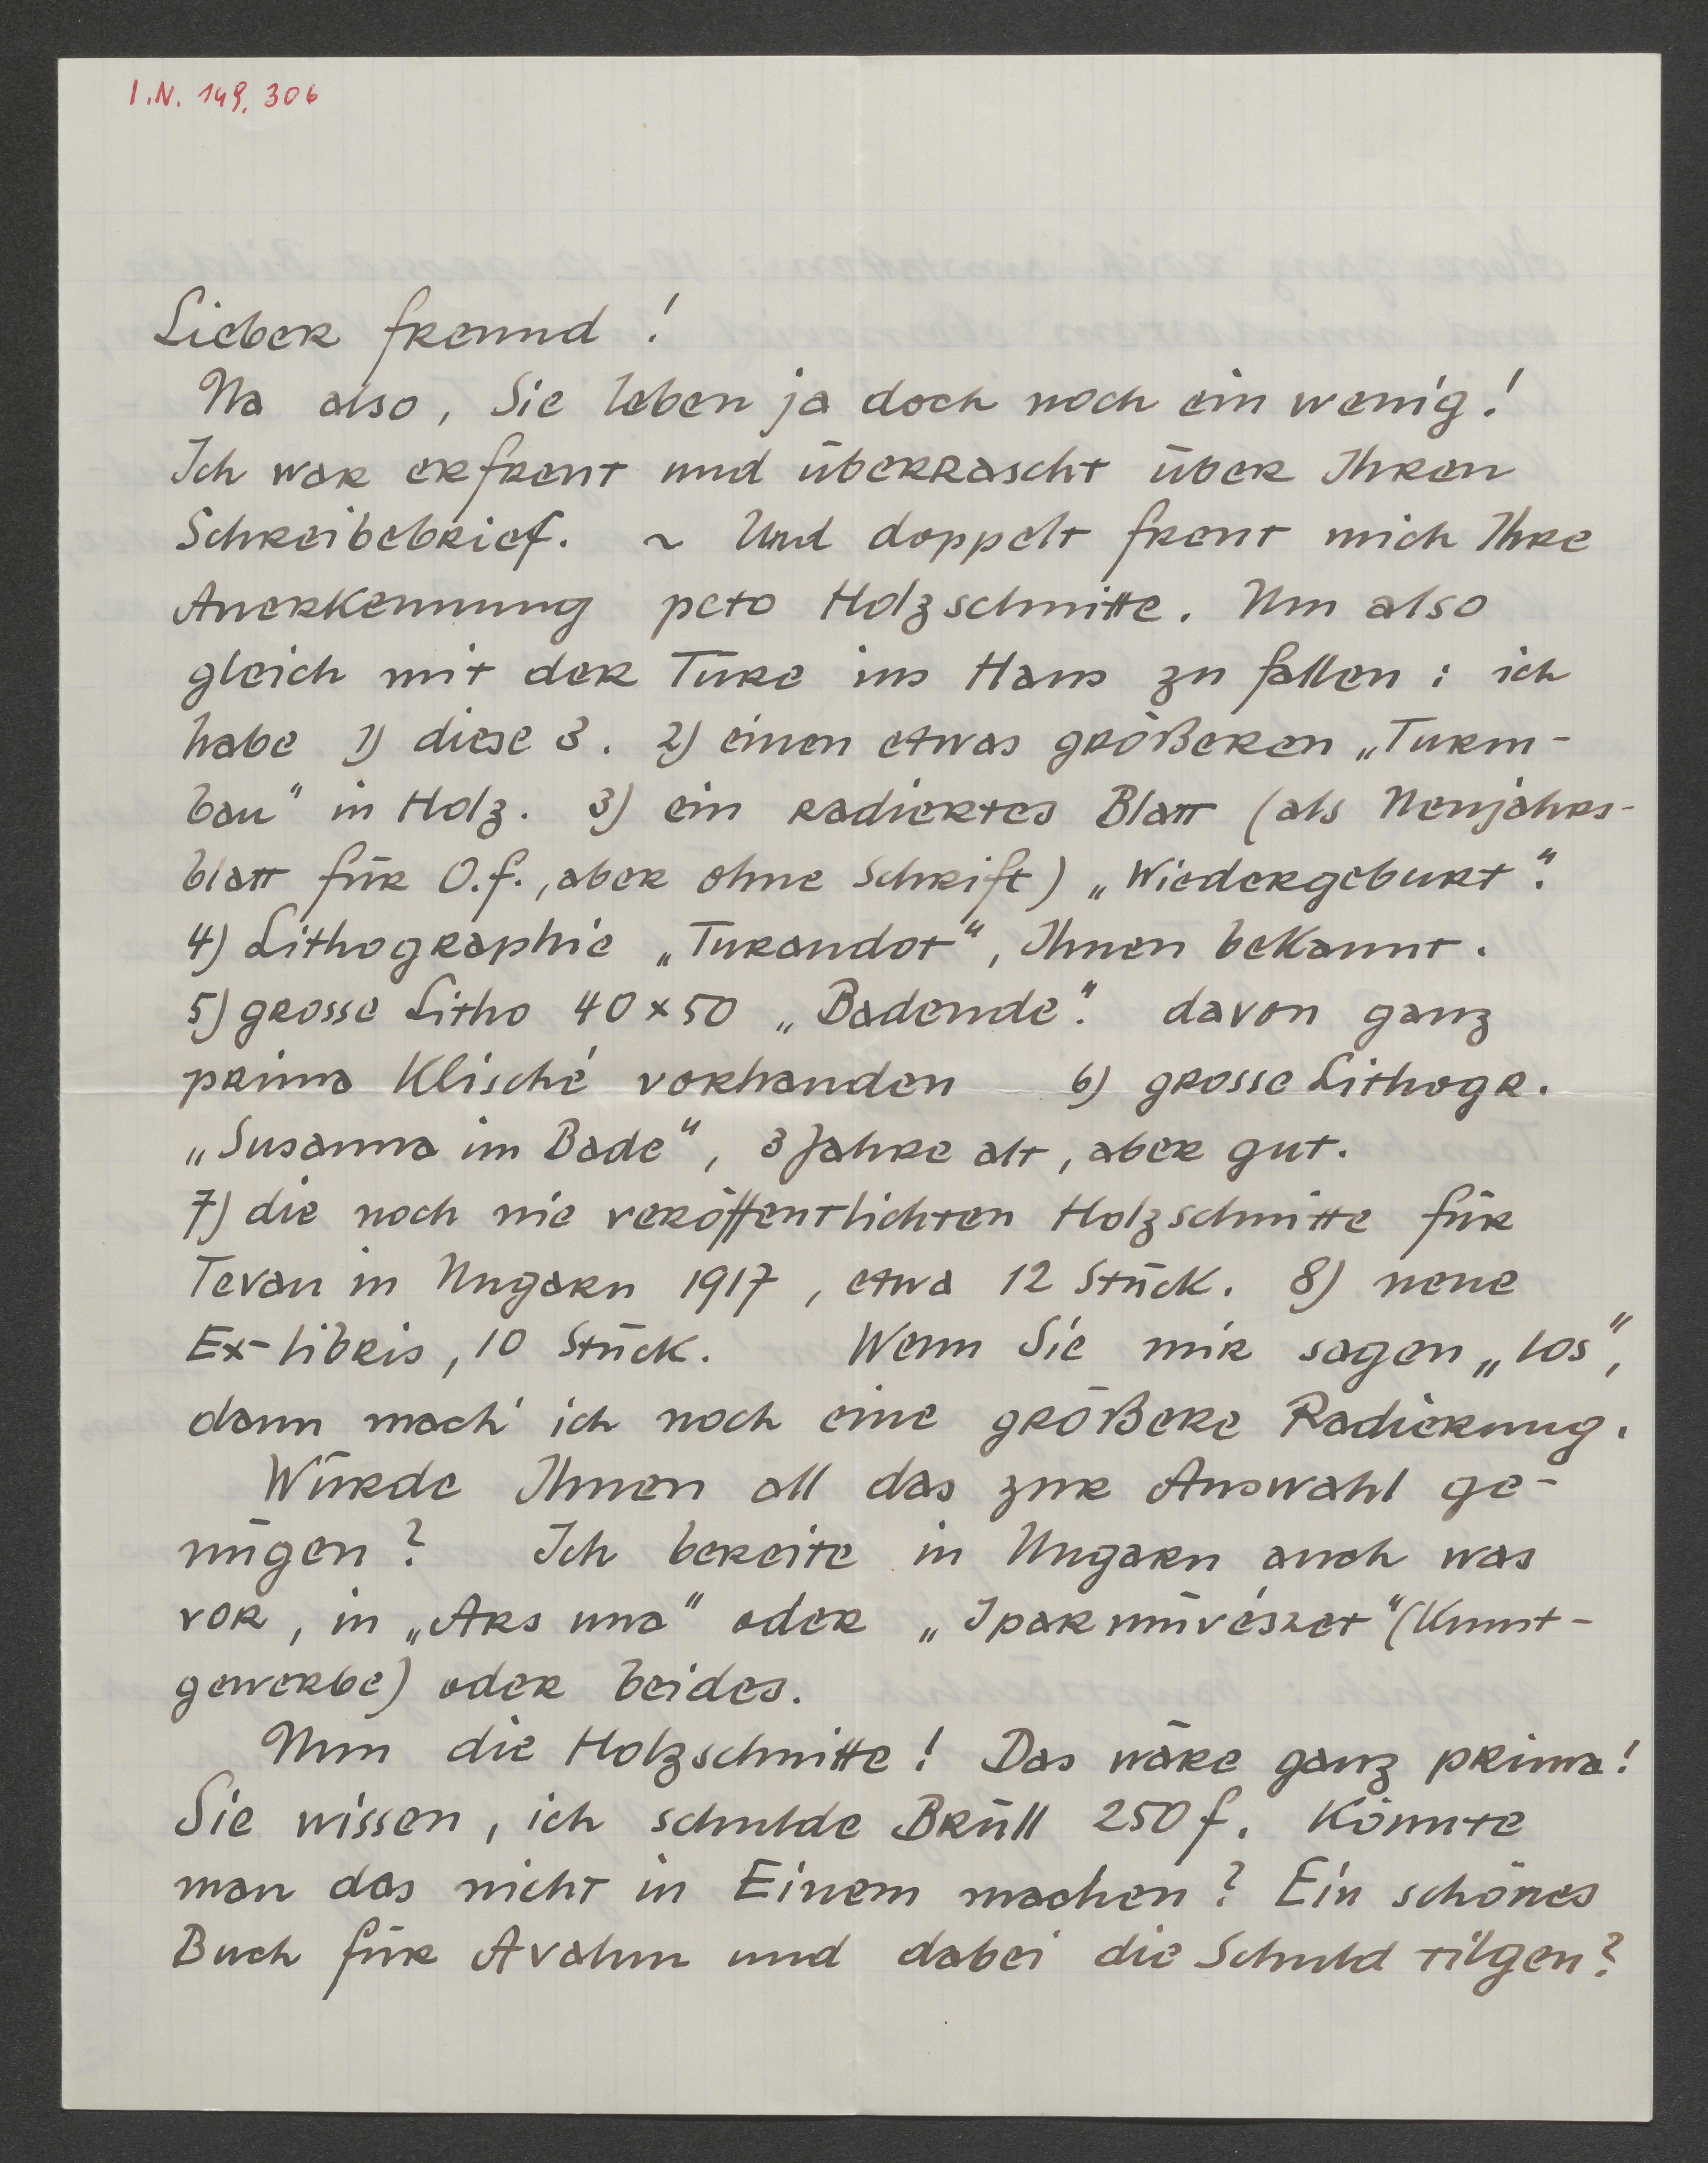 I.N. 149.306
Lieber Freund!
Na also, Sie leben ja doch noch ein wenig!
Ich war erfreut und überrascht über Ihren
Schreibebrief. ~ Und doppelt freut mich Ihre
Anerkennung pcto Holzschnitte. Um also
gleich mit der Türe ins Haus zu fallen: ich
habe 1) diese 3. 2) einen etwas größeren „Turm-
bau“ in Holz. 3) ein radiertes Blatt (als Neujahrs-
blatt für O.F., aber ohne Schrift) „Wiedergeburt“.
4) Lithographie „Turandot“, Ihnen bekannt.
5) grosse Litho 40x50 „Badende“. davon ganz
prima Klisché vorhanden 6) grosse Lithogr.
„Susanna im Bade“, 3 Jahre alt, aber gut.
7) die noch nie veröffentlichten Holzschnitte für
Tevan in Ungarn 1917, etwa 12 Stück. 8) neue
Ex-libris, 10 Stück. Wenn Sie mir sagen „los“,
dann mach' ich noch eine größere Radierung.
Würde Ihnen all das zur Auswahl ge-
nügen? Ich bereite in Ungarn auch was
vor, in „Ars una“ oder „Iparmüvészet“ (Kunst-
gewerbe) oder beides.
Nun die Holzschnitte! Das wäre ganz prima!
Sie wissen, ich schulde Brüll 250 f. Könnte
man das nicht in Einem machen? Ein schönes
Buch für Avalun und dabei die Schuld tilgen?